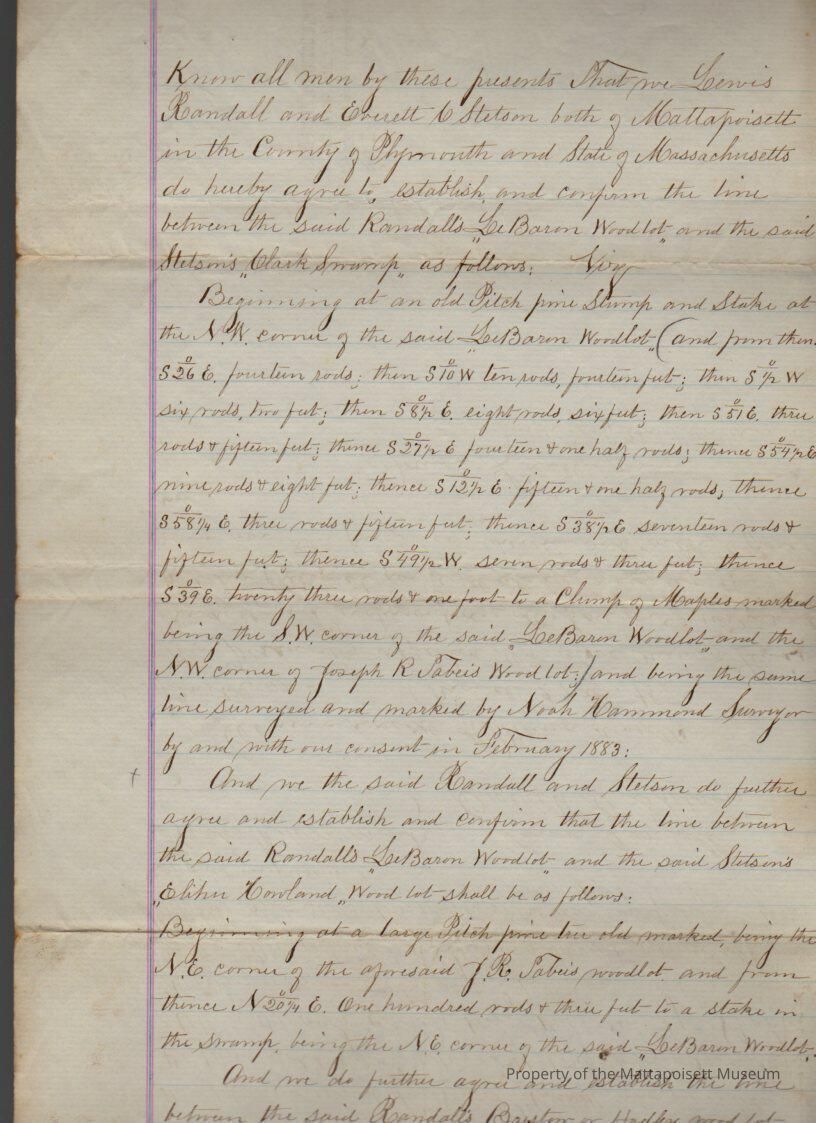 Know all men by these presents That we Lewis
Randall and Everett C Stetson both of Mattapoisett
in the County of Plymouth and State of Massachusetts
do hereby agree to, establish, and confirm the line
between the said Randall's „LeBaron Woodlot" and the said
Stetson's „Clark Swamp„ as follows; Viz
Beginning at an old Pitch pine Stump and Stake at
the N.W. corner of the said „LeBaron Woodlot„ (and from then
S 26° E. fourteen rods; then S 10° W ten rods, fourteen feet; then S ½° W
six rods, two feet; then S 8½° E. eight rods, six feet; then S 51° E. three
rods & fifteen feet; thence S 27½° E fourteen & one half rods; thence S 54½° E
nine rods & eight feet; thence S 12½° E. fifteen & one half rods; thence
S 58¼° E. three rods & fifteen feet; thence S 38½° E seventeen rods &
fifteen feet; thence S 49½° W. seven rods & three feet; thence
S 39° E. twenty three rods & one foot to a Clump of Maples marked
being the S.W. corner of the said „LeBaron Woodlot„ and the
N.W. corner of Joseph R Tabers Wood lot;) and being the same
line surveyed and marked by Noah Hammond Surveyor
by and with our consent in February 1883:
And we the said Randall and Stetson do further
agree and establish and confirm that the line between
the said Randall's „LeBaron Woodlot„ and the said Stetson's
„Elihu Howland„ Wood lot shall be as follows:
Beginning at a large Pitch pine tree old marked, being the
N.E. corner of the aforesaid J. R. Tabers woodlot and from
thence N 20¼° E. One hundred rods & three feet to a stake in
the swamp, being the N.E. corner of the said „LeBaron Woodlot„
And we do further agree and establish the line
between the said Randall's Barstow or Hadley wood lot
Property of the Mattapoisett Museum